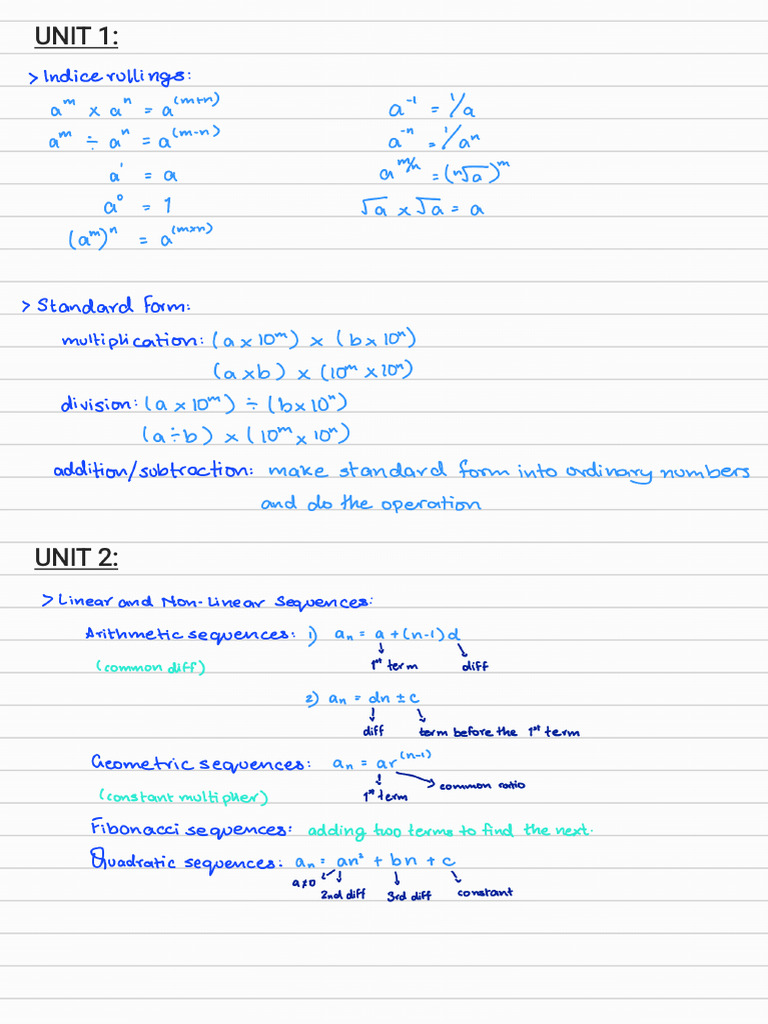 UNIT 1:
> Indice rullings:
aᵐ x aⁿ = a⁽ᵐ⁺ⁿ⁾
a⁻¹ = ¹/a
aᵐ ÷ aⁿ = a⁽ᵐ⁻ⁿ⁾
a⁻ⁿ = ¹/aⁿ
a¹ = a
a^(m/n) = (ⁿ√a)ᵐ
a⁰ = 1
√a x √a = a
(aᵐ)ⁿ = a⁽ᵐˣⁿ⁾
> Standard form:
multiplication: (a x 10ᵐ) x (b x 10ⁿ)
(a x b) x (10ᵐ x 10ⁿ)
division: (a x 10ᵐ) ÷ (b x 10ⁿ)
(a ÷ b) x (10ᵐ x 10ⁿ)
addition/subtraction: make standard form into ordinary numbers
and do the operation
UNIT 2:
> Linear and Non-Linear Sequences:
Arithmetic sequences: 1) aₙ = a + (n-1)d
(common diff) 1ˢᵗ term diff
2) aₙ = dn ± c
diff term before the 1ˢᵗ term
Geometric sequences: aₙ = ar⁽ⁿ⁻¹⁾
common ratio
(constant multiplier) 1ˢᵗ term
Fibonacci sequences: adding two terms to find the next.
Quadratic sequences: aₙ = an² + bn + c
a≠0 2nd diff 3rd diff constant